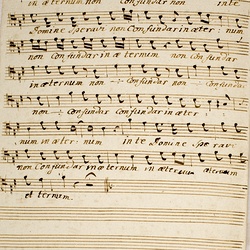 in æternum non Confundar in te
Domine speravi non Confundar in æter: num
non confundar in æternum non Confundar
in æternum non Confundar non Confundar
non confundar in æter:
num in æter: num in te Domine Spe ravi
non Confundar in æternum in æternum æternum
et ternum.